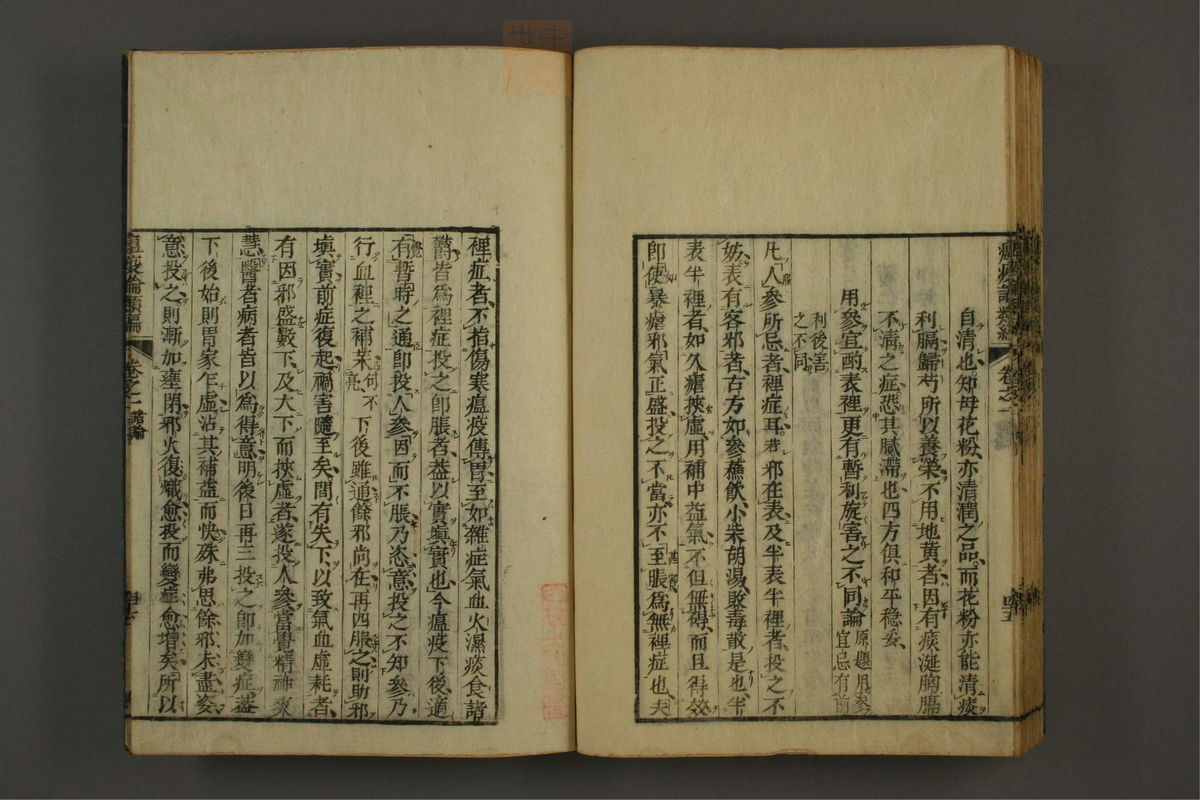 自清也知母花粉亦清潤之品而花粉亦能清痰
利膈歸芍所以養榮不用地黄者因有痰涎胸膈
不清之症恐其膩滯也四方俱和平穩妥
用參宜酌表裡更有暫利旋害之不同論 原題用參宜忌有前利後害之不同
凡人參所忌者裡症耳若邪在表及半表半裡者投之不
妨表有客邪者古方如參蘇飲小柴胡湯敗毒散是也半
表半裡者如久瘧挾虚用補中益氣不但無碍而且得效
即使暴瘧邪氣正盛投之不當亦不至脹為無裡症也夫
裡症者不指傷寒瘟疫傳胃至如雜症氣血火濕痰食諸
欝皆為裡症投之即脹者葢以實填實也今瘟疫下後適
有暫時之通即投人參因而不脹乃恣意投之不知參乃
行血裡之補藥 下後雖通餘邪尚在再四服之則助邪
填實前症復起禍害隨至矣間有失下以致氣血虚耗者
有因邪盛數下及大下而挾虚者遂投人參當覺精神爽
慧醫者病者皆以為得意明後日再三投之即加變症葢
下後始則胃家乍虚沾其補益而快殊弗思餘邪未盡姿
意投之則漸加壅閉邪火復熾愈投而變症愈增矣所以
瘟疫論類編 卷之一 諸論